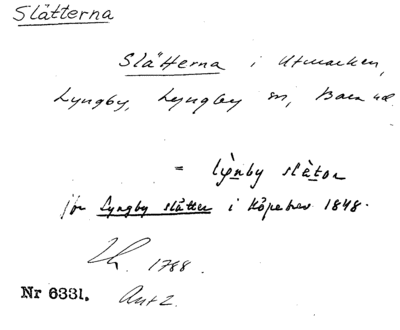 Slätterna
Slätterna i Utmarken,
Lyngby, Lyngby sn, Bara hd
= lỳnby slàtor
jfr Lyngby slätter i Köpebrev 1848.
1788.
Nr 6331. Ant 2.